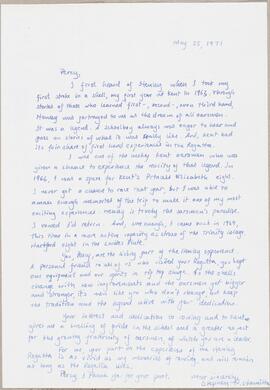 May 25, 1971
Percy,
I first heard of Henley when I took my
first stroke in a shell, my first year at Kent in 1963. Through
stories of those who learned first-, second-, even third hand,
Henley was portrayed to us as the dream of all oarsmen.
It was a legend. A schoolboy always was eager to hear and
pass on stories of what it was really like. And, Kent had
its fair share of first hand experiences in the Regatta.
I was one of the lucky Kent oarsmen who was
given a chance to experience the reality of that legend. In
1966, I was a spare for Kent's Princess Elizabeth eight.
I never got a chance to race that year, but I was able to
amass enough memories of the trip to make it one of my most
exciting experiences. Henley is truely the oarsmen's paradise.
I vowed I'd return. And, sure enough, I came back in 1969,
this time in a more active capacity as stroke of the Trinity College
Hartford eight in the Ladies Plate.
You, Percy, are the living part of the Henley experience
A personal friend to all of us who visited your Regatta, you kept
our equipment and our spirits in tip top shape. So the shells
change with new improvements and the oarsmen get bigger
and stronger, it's men like you who don't change but keep
the tradition and the legend alive with your dedication.
Your interest and dedication to rowing and to Kent
gives me a swelling of pride in the school and a greater respect
for the growing fraternity of oarsmen of which you are a leader.
For me, your part in the experience of the Henley
Regatta is as vivid as my memories of rowing and will remain
as long as the Regatta will.
Percy, I thank you for your part,
most sincerely,